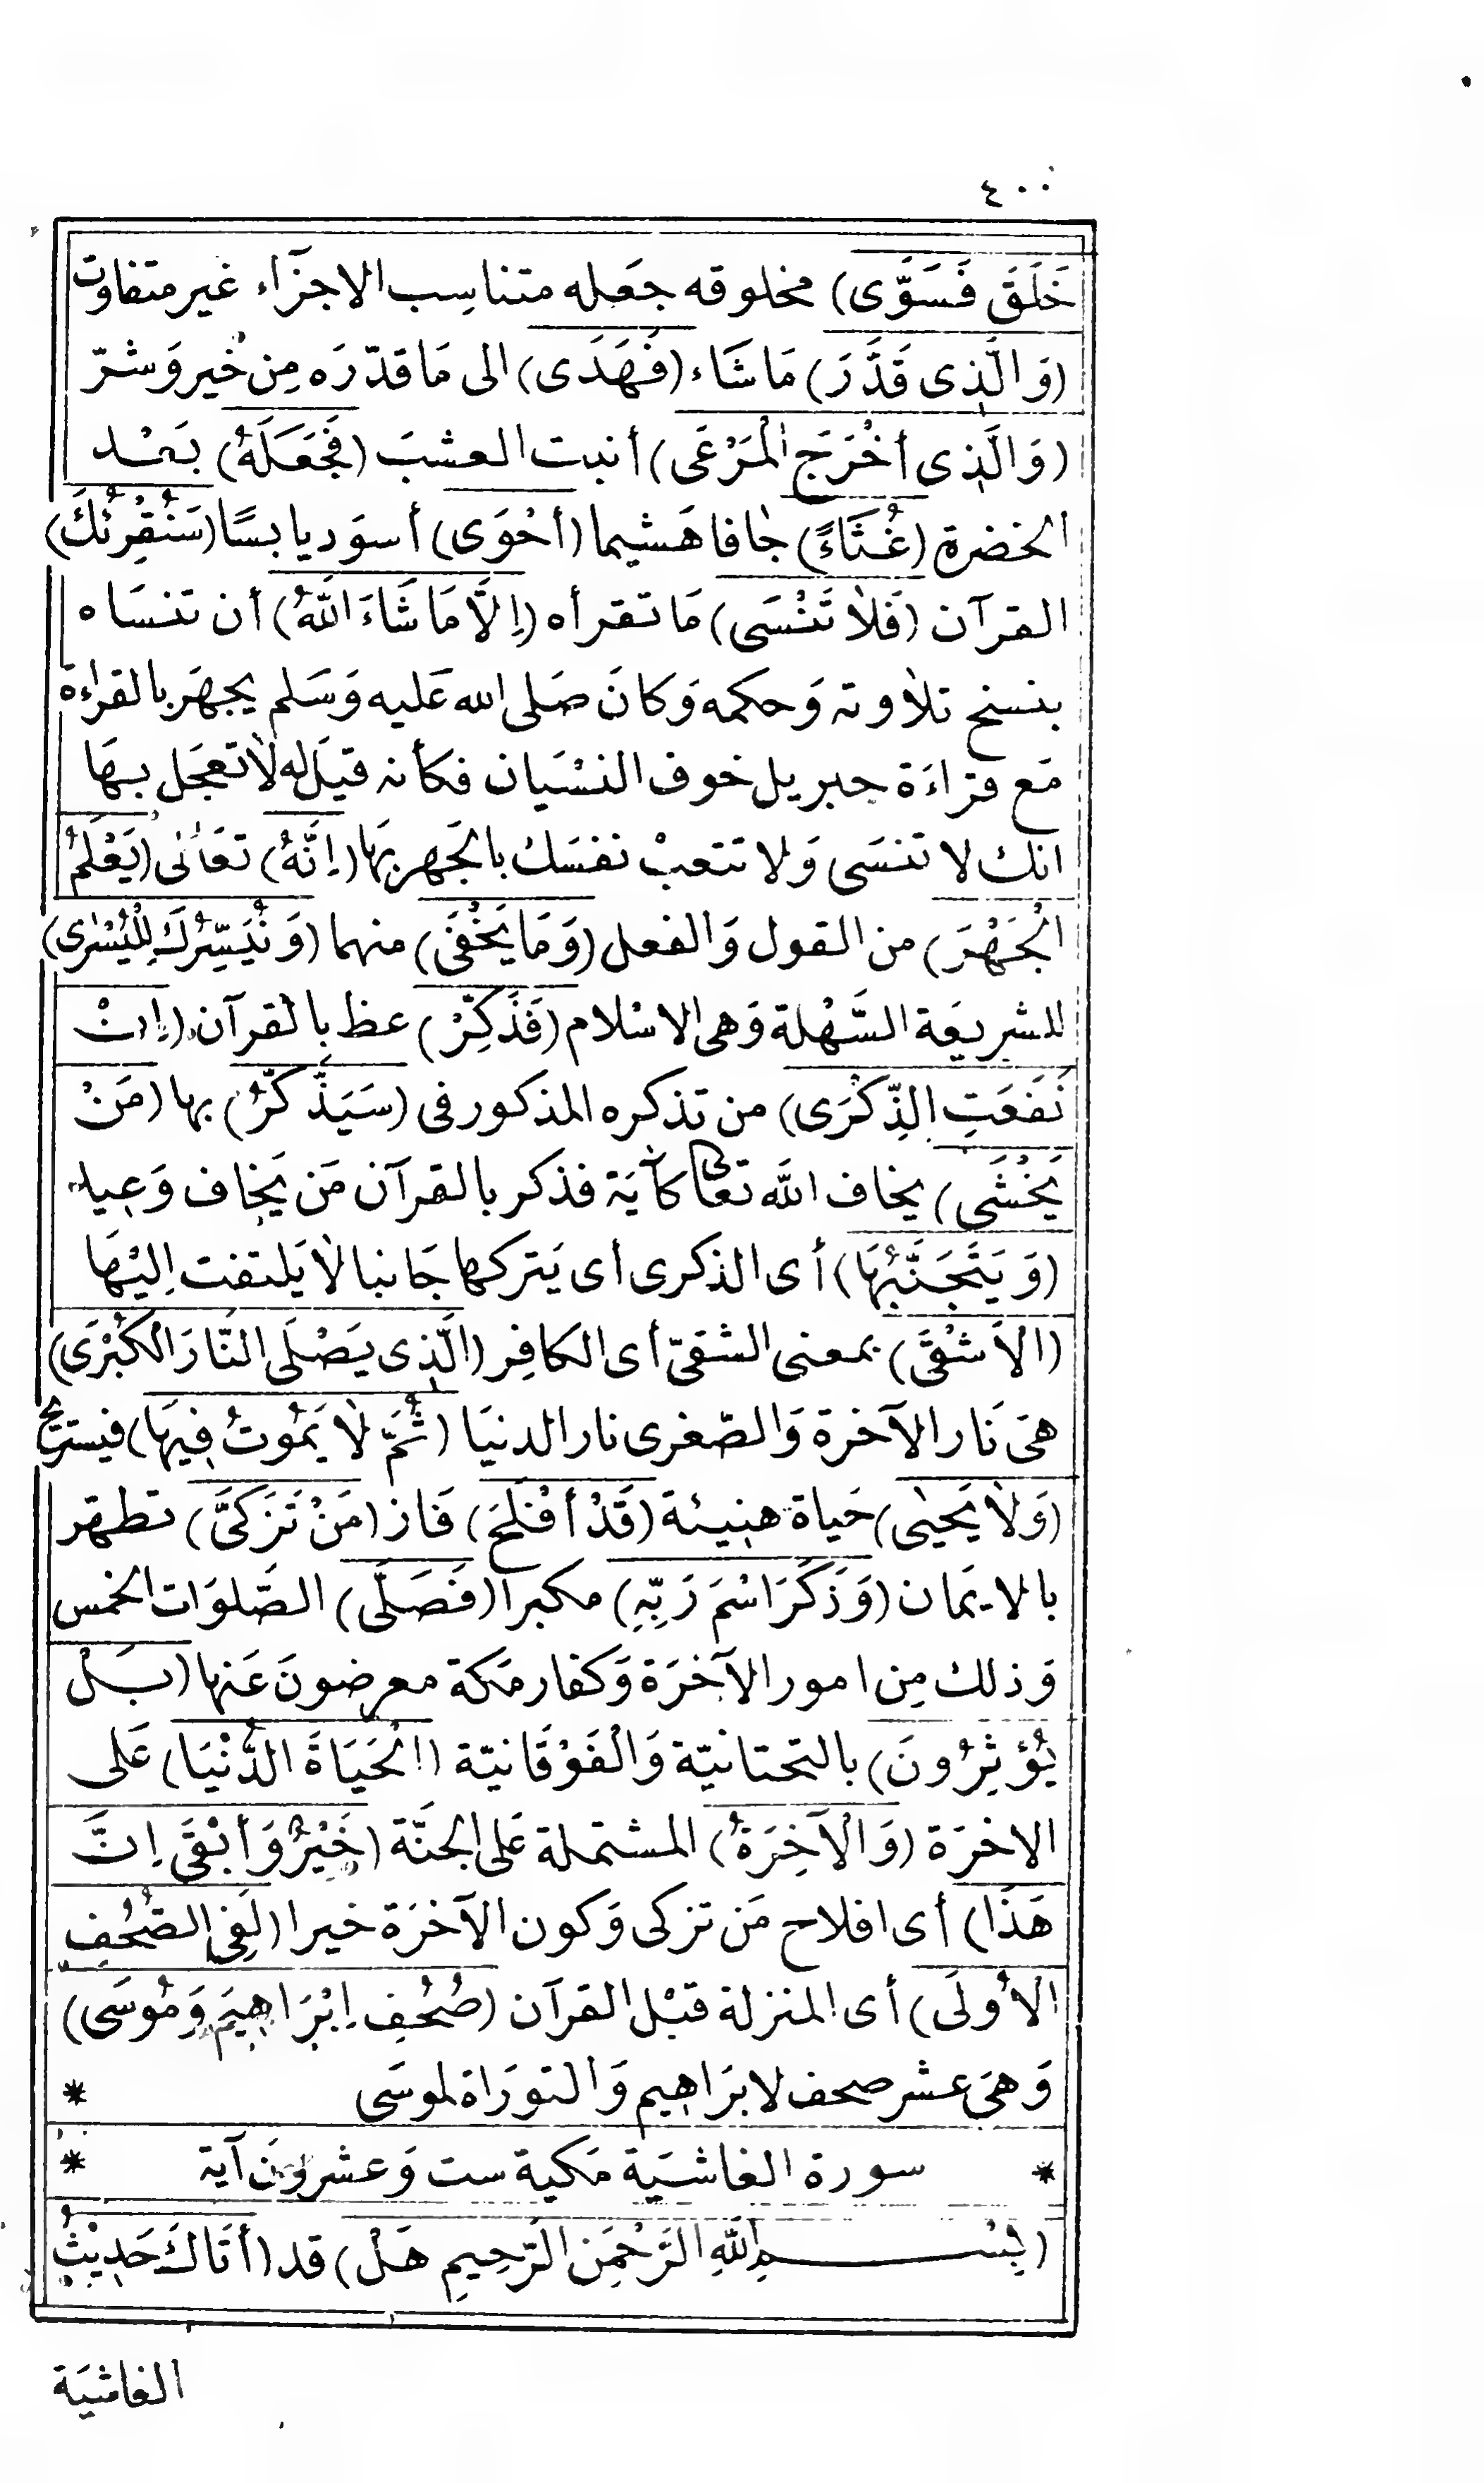 ٤٠٠
خَلَقَ فَسَوَّى) مخلوقه جعَله متناسِب الاجزَاء غير متفاوت
(وَالَّذِى قَدَّرَ) مَاشَاء (فَهَدَى) الى مَا قدّرَه مِن خير وَشرّ
(وَالَّذِى أَخْرَجَ الْمَرْعَى) أنبت العشبَ (فَجَعَلَهُ) بَعْد
الخضرة (غُثَاءً) جافا هَشيما (أَحْوَى) أسوَد يابسًا (سَنُقْرِئُكَ)
القرآن (فَلَا تَنْسَى) مَا تقرأه (إِلَّا مَا شَاءَ اللَّهُ) أن تنسَاه
بنسخ تلاوته وَحكمه وَكانَ صَلى الله عَليه وَسَلم يجهَر بالقراءة
مَع قراءَة جبريل خوف النسْيَان فكأنه قيَل له لَا تعجَل بهَا
انك لا تنسَى وَلا تتعبْ نفسَك بالجَهر بهَا (إِنَّهُ) تعَالى (يَعْلَمُ
الْجَهْرَ) من القول وَالفعل (وَمَا يَخْفَى) منهما (وَنُيَسِّرُكَ لِلْيُسْرَى)
للشريعَة السَّهْلة وَهى الاسْلام (فَذَكِّرْ) عظ بالقرآن (إِنْ
نَفَعَتِ الذِّكْرَى) من تذكره المذكور فى (سَيَذَّكَّرُ) بها (مَنْ
يَخْشَى) يخاف اللَّه تعالى كآيَة فذكر بالقرآن مَن يَخاف وَعِيد
(وَيَتَجَنَّبُهَا) أى الذكرى أى يَتركها جَانبا لَا يَلتفت إليْهَا
(الأَشْقَى) بمعنى الشقىّ أى الكافِر (الَّذِى يَصْلَى النَّارَ الْكُبْرَى)
هىَ نَار الآخرة وَالصّغرى نار الدنيَا (ثُمَّ لَا يَمُوتُ فِيهَا) فيستريح
(وَلَا يَحْيَى) حَياة هنيئة (قَدْ أَفْلَحَ) فَاز (مَنْ تَزَكَّى) تطهر
بالايمَان (وَذَكَرَ اسْمَ رَبِّهِ) مكبرا (فَصَلَّى) الصَّلوَات الخمس
وَذلك مِن امور الآخرَة وَكفار مَكة معرضونَ عَنها (بَلْ
يُؤْثِرُونَ) بالتحتانيّة وَالْفَوْقَانيّة (الْحَيَاةَ الدُّنْيَا) عَلى
الاخرَة (وَالْآخِرَةُ) المشتملة عَلى الجنَّة (خَيْرٌ وَأَبْقَى إِنَّ
هَذَا) أى افلاح مَن تزكى وَكون الآخرَة خيرا (لَفِى الصُّحُفِ
الْأُولَى) أى المنزلة قبْل القرآن (صُحُفِ إِبْرَاهِيمَ وَمُوسَى)
وَهىَ عشر صحف لابرَاهِيم وَالتورَاة لموسَى *
* سورة الغاشيَة مَكية ست وَعشرون آية *
(بِسْمِ اللَّهِ الرَّحْمَنِ الرَّحِيمِ هَلْ) قد (أَتَاكَ حَدِيثُ
الغاشيَة